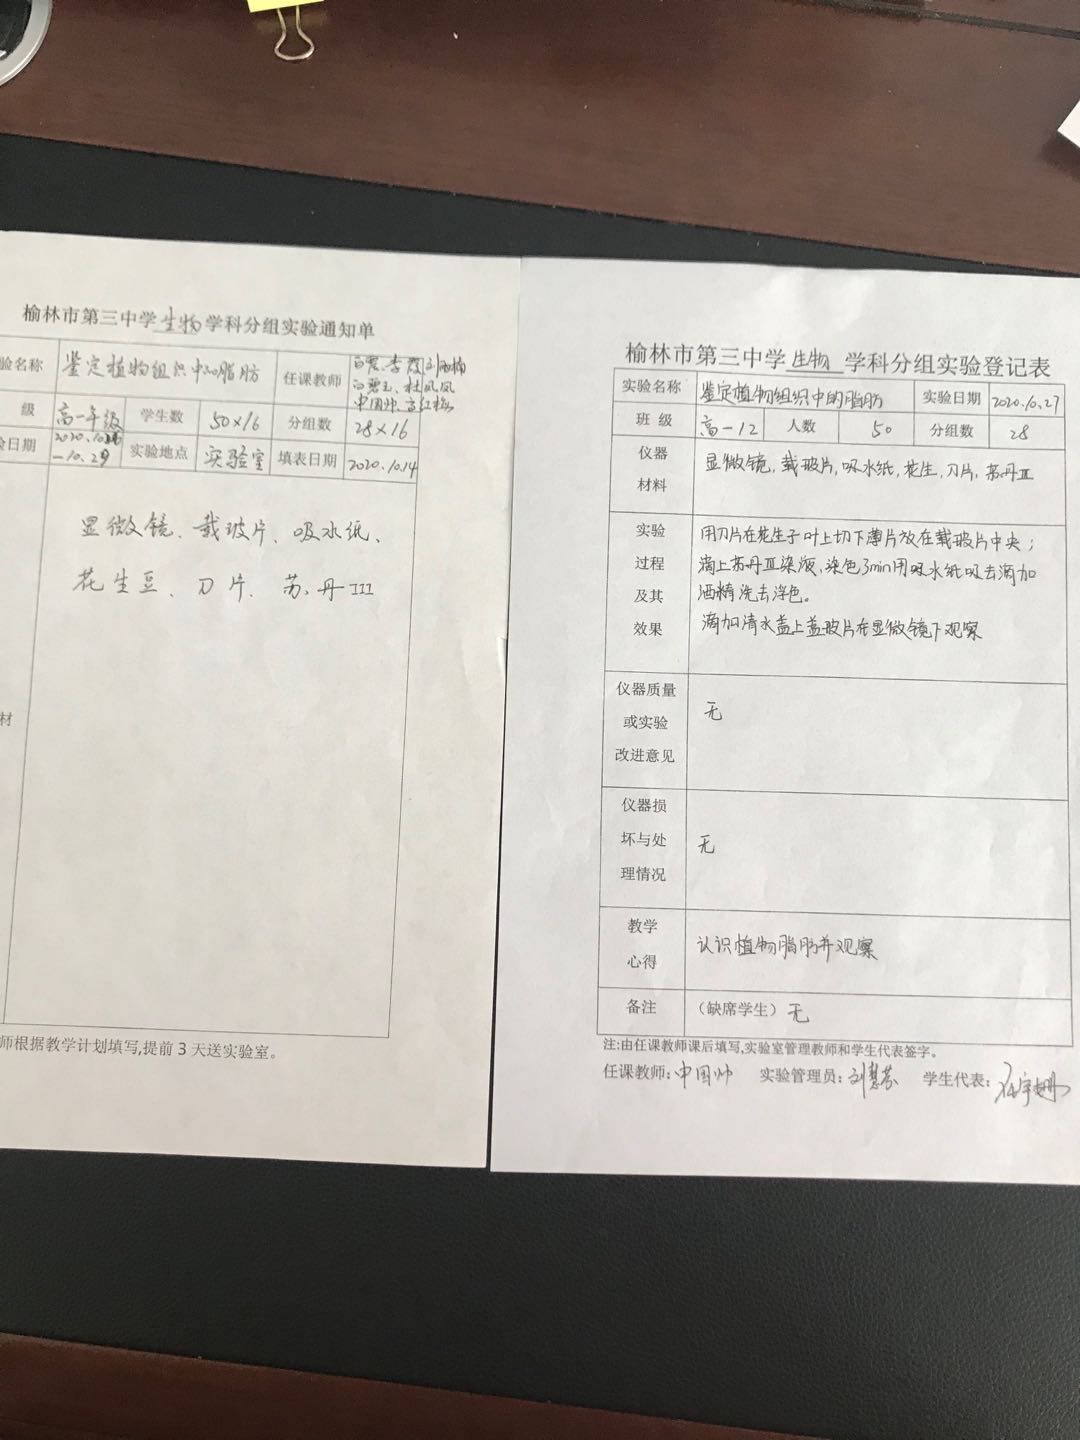 榆林市第三中学生物学科分组实验通知单
验名称 鉴定植物组织中的脂肪 任课教师
白碧玉、杜凤凤
申国帅、高红松
级 高一年级 学生数 50×16 分组数 28×16
验日期 实验地点 实验室 填表日期 2020.10.14
显微镜、载玻片、吸水纸、
花生豆、刀片、苏丹III
材
师根据教学计划填写,提前3天送实验室。
榆林市第三中学生物学科分组实验登记表
实验名称 鉴定植物组织中的脂肪 实验日期 2020.10.27
班 级 高一12 人数 50 分组数 28
仪器 显微镜,载玻片,吸水纸,花生,刀片,苏丹III
材料
实验 用刀片在花生子叶上切下薄片放在载玻片中央;
过程 滴上苏丹III染液,染色3min用吸水纸吸去滴加
及其 酒精洗去浮色。
效果 滴加清水盖上盖玻片在显微镜下观察
仪器质量
或实验 无
改进意见
仪器损
坏与处 无
理情况
教学 认识植物脂肪并观察
心得
备注 (缺席学生)无
注:由任课教师课后填写,实验室管理教师和学生代表签字。
任课教师:申国帅 实验管理员:刘慧芬 学生代表: